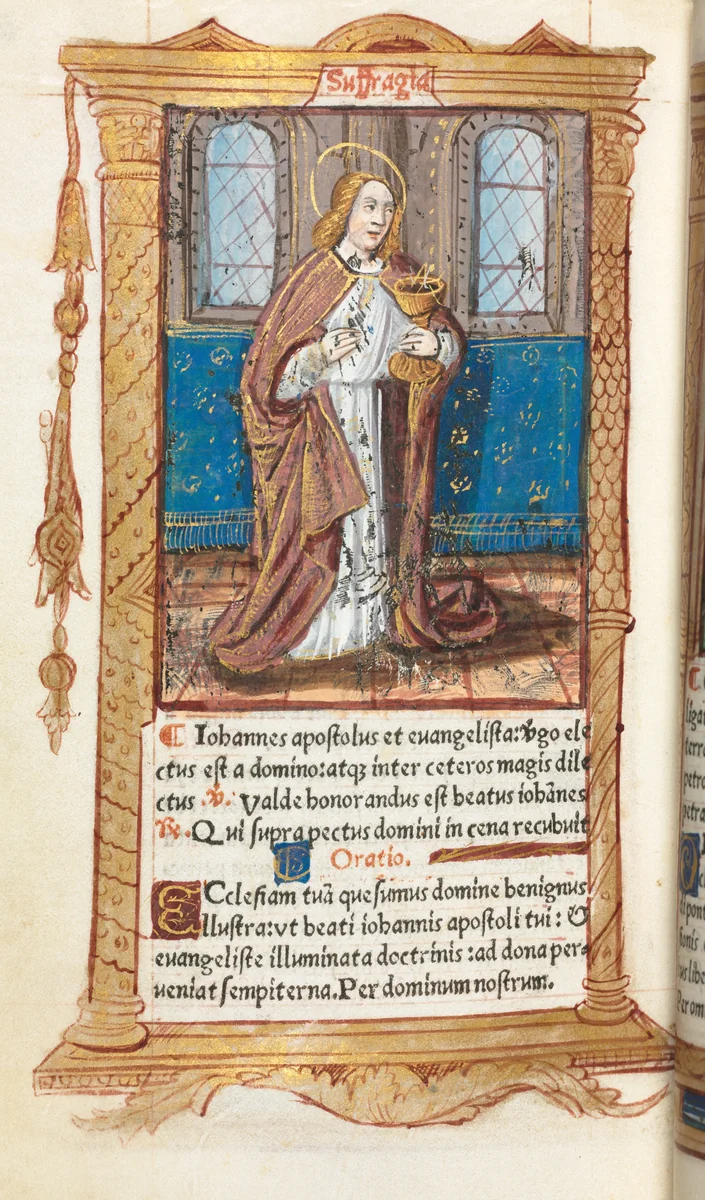 Suffragia
¶ Iohannes apostolus et evangelista: v̄go ele
ctus est a domino: atqꝫ inter ceteros magis dile
ctus ℣. Valde honorandus est beatus iohānes
℟. Qui supra pectus domini in cena recubuit
Oratio.
ECclesiam tuā quesumus domine benignus
illustra: vt beati iohannis apostoli tui: &
evangeliste illuminata doctrinis: ad dona per-
veniat sempiterna. Per dominum nostrum.